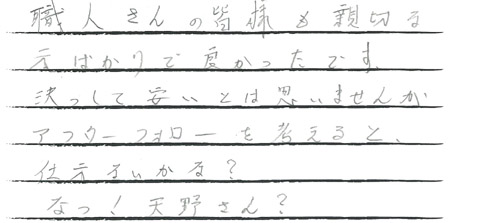 職人さんの皆様も親切な
方ばかりで良かったです。
決っして安いとは思いませんが
アフターフォローを考えると、
仕方ないかな?
なっ!天野さん?